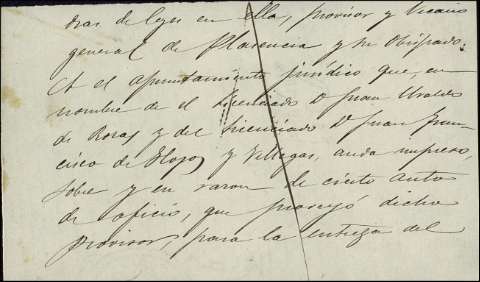 dras de leyes en ella, provisor y Vicario
general de Plasencia y su Obispado:
Al el apuntamiento jurídico que, en
nombre de el Licenciado Dn Juan Ubaldo
de Rozas y del Licenciado Dn Juan Fran-
cisco de Hoyos y Villegas, anda impreso,
sobre y en razon de cierto auto
de oficio, que proveyó dicho
provisor, para la entrega del